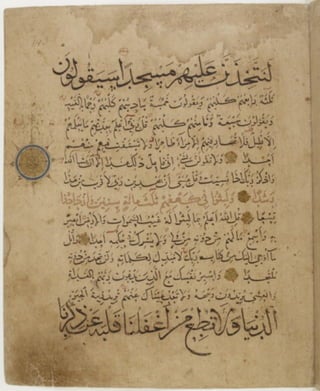 لنتخذن عليهم مسجدا سيقولون
ثلثة رابعهم كلبهم ويقولون خمسة سادسهم كلبهم رجما بالغيب
ويقولون سبعة وثامنهم كلبهم قل ربي اعلم بعدتهم ما يعلمهم
الا قليل فلا تمار فيهم الا مراء ظاهرا ولا تستفت فيهم منهم
احدا ولا تقولن لشيء اني فاعل ذلك غدا الا ان يشاء الله
واذكر ربك اذا نسيت وقل عسى ان يهدين ربي لاقرب من هذا
رشدا ولبثوا في كهفهم ثلث مائة سنين وازدادوا
تسعا قل الله اعلم بما لبثوا له غيب السموات والارض ابصر
به واسمع ما لهم من دونه من ولي ولا يشرك في حكمه احدا واتل
ما اوحي اليك من كتاب ربك لا مبدل لكلماته ولن تجد من دونه
ملتحدا واصبر نفسك مع الذين يدعون ربهم بالغداة
والعشي يريدون وجهه ولا تعد عيناك عنهم تريد زينة الحيوة
الدنيا ولا تطع من اغفلنا قلبه عن ذكرنا